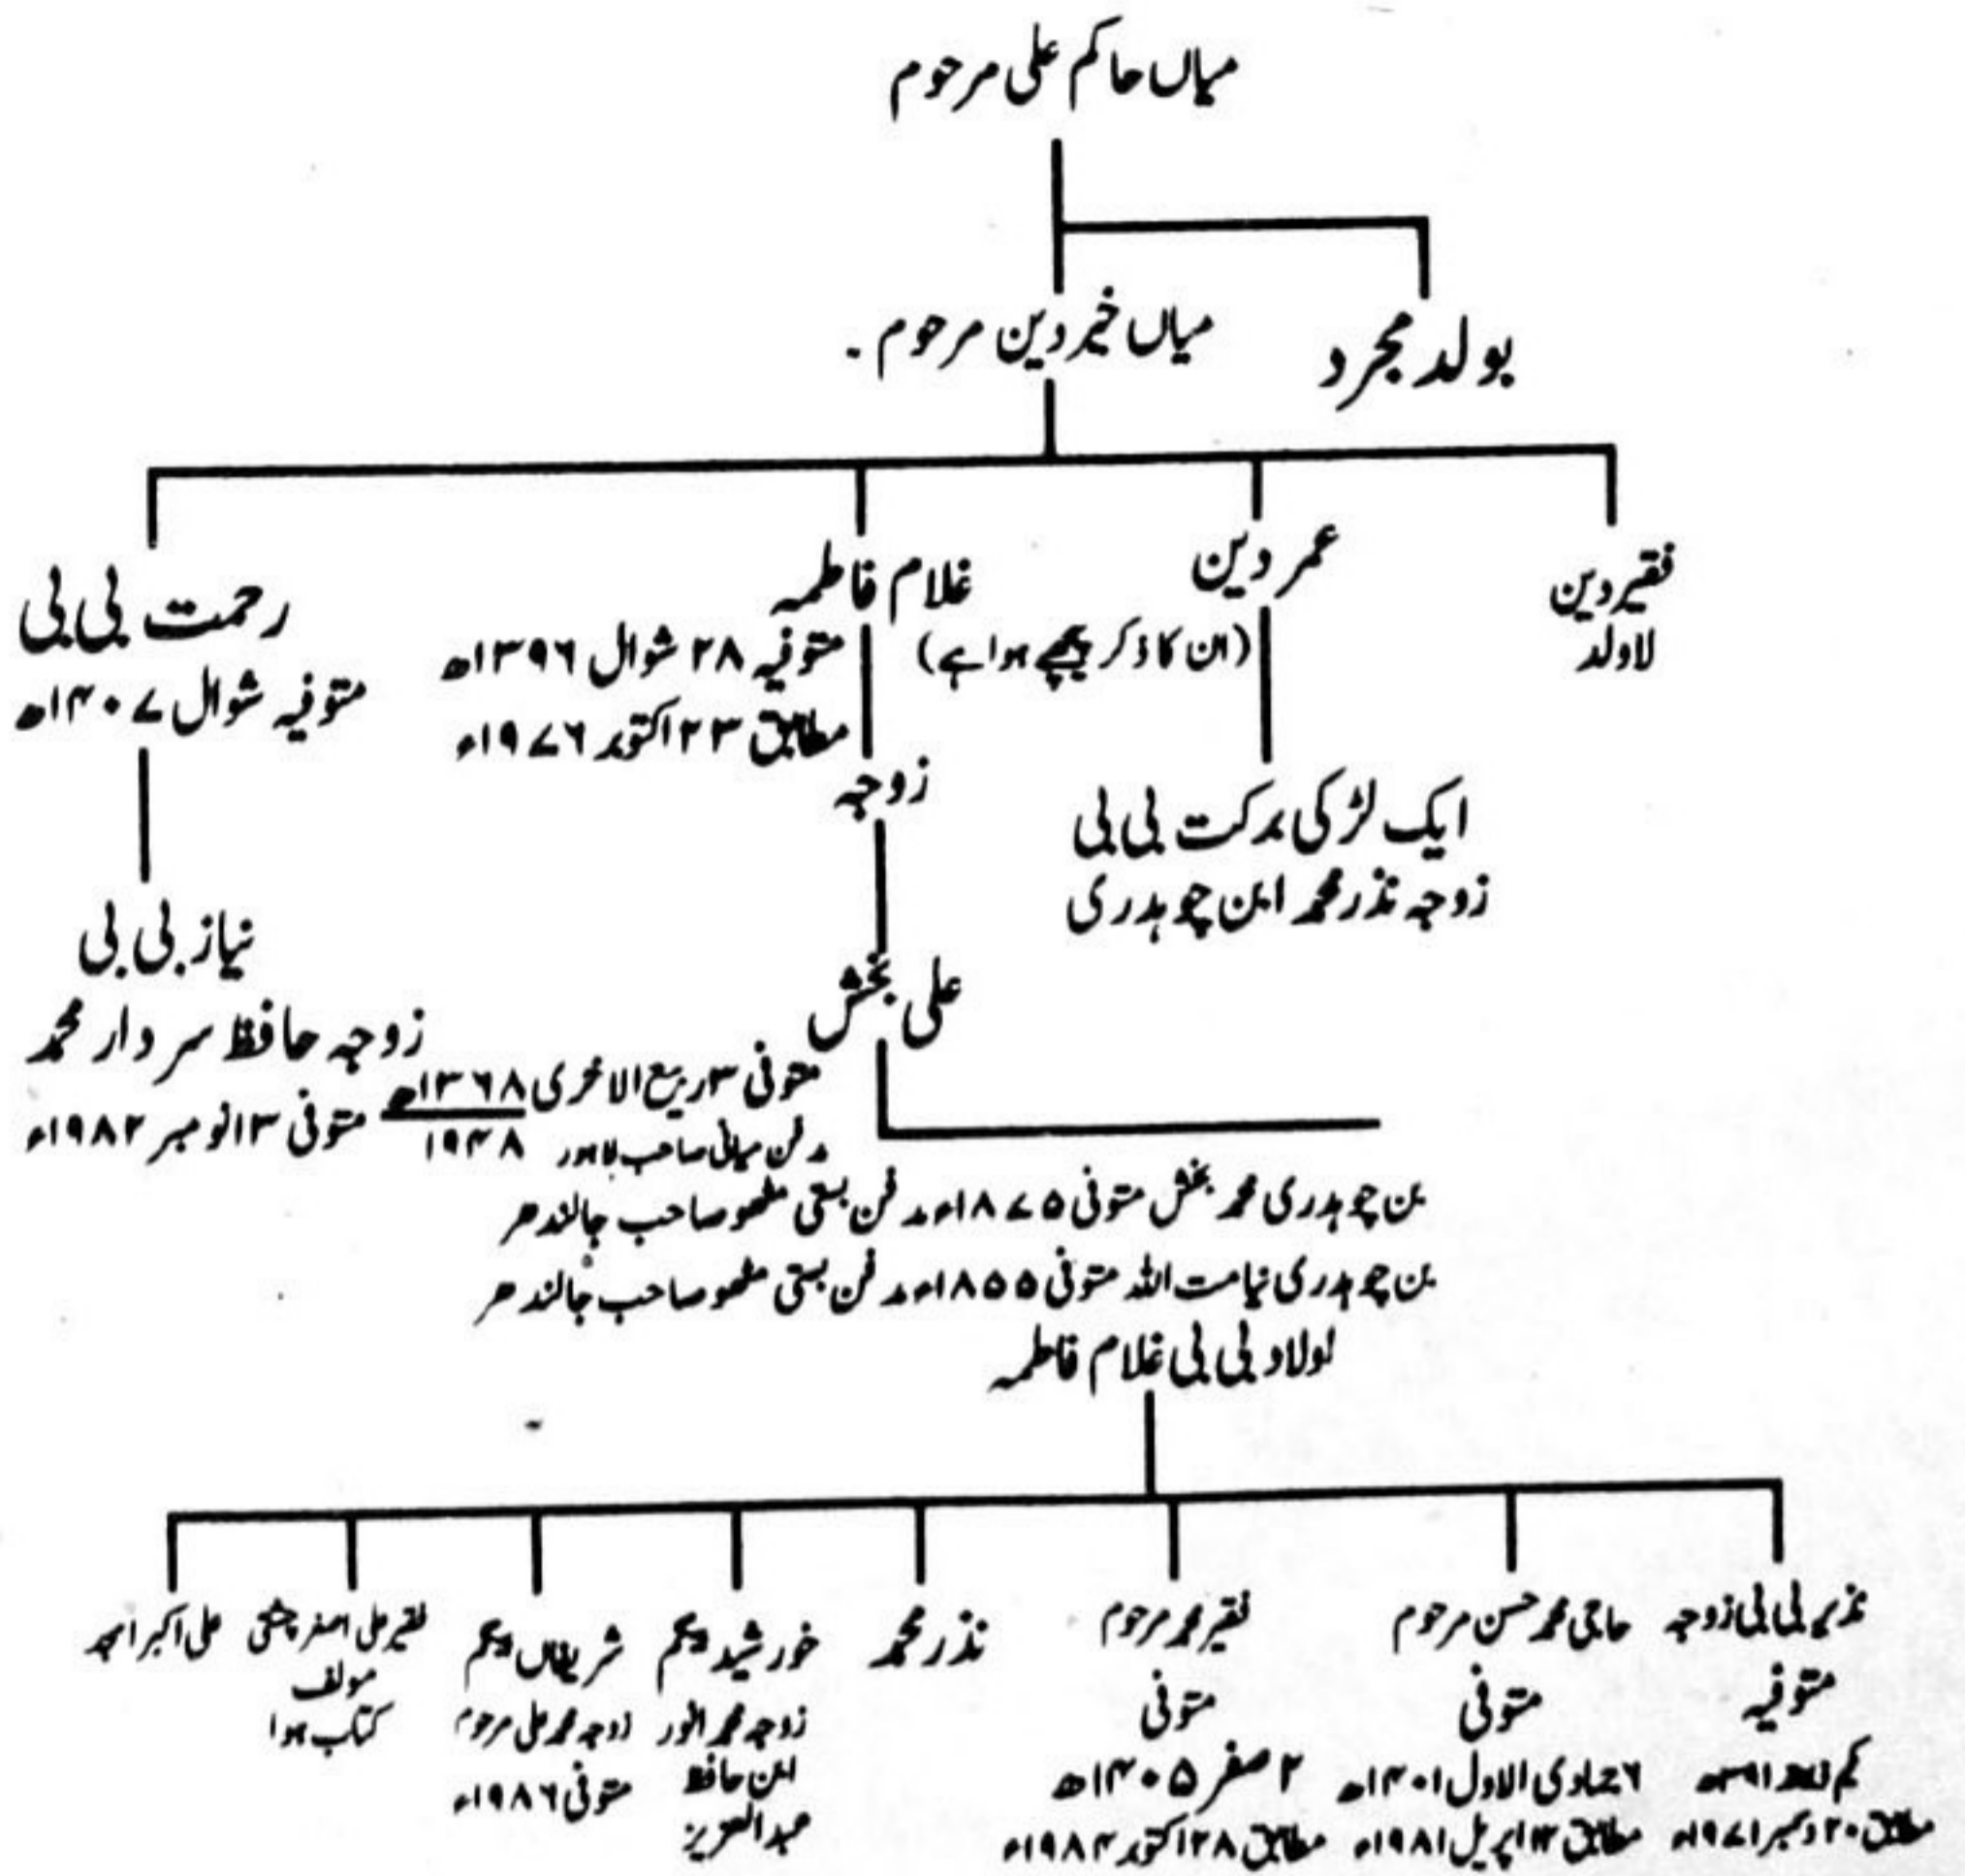 میاں حاکم علی مرحوم
میاں خیر دین مرحوم ۔
بولد مجرد
فقیر دین
لاولد
عمر دین
(ان کا ذکر پیچھے ہوا ہے)
ایک لڑکی برکت بی بی
زوجہ نذر محمد ابن چوہدری
غلام فاطمہ
متوفیہ ۲۸ شوال ۱۳۹۶ھ
مطابق ۲۳ اکتوبر ۱۹۷۶ء
زوجہ
علی بخش
متوفی ۳ ربیع الاخری ۱۳۶۸ھ
۱۹۴۸
مدفن میانی صاحب لاہور
بن چوہدری محمد بخش متوفی ۱۸۷۵ء مدفن بستی مٹھو صاحب جالندھر
بن چوہدری نیامت اللہ متوفی ۱۸۵۵ء مدفن بستی مٹھو صاحب جالندھر
رحمت بی بی
متوفیہ شوال ۱۴۰۷ھ
نیاز بی بی
زوجہ حافظ سردار محمد
متوفی ۱۳ نومبر ۱۹۸۲ء
اولاد بی بی غلام فاطمہ
نذیر بی بی زوجہ
متوفیہ
یکم
مطابق ۲۰ دسمبر ۱۹۷۱ء
حاجی محمد حسن مرحوم
متوفی
۶ جمادی الاول ۱۴۰۱ھ
مطابق اپریل ۱۹۸۱ء
فقیر محمد مرحوم
متوفی
۲ صفر ۱۴۰۵ھ
مطابق ۲۸ اکتوبر ۱۹۸۴ء
نذر محمد
خورشید بیگم
زوجہ محمد انور
ابن حافظ
عبدالعزیز
شریفاں بیگم
زوجہ محمد علی مرحوم
متوفی ۱۹۸۶ء
فقیر علی اصغر چشتی
مولف
کتاب ہوا
علی اکبر امجد